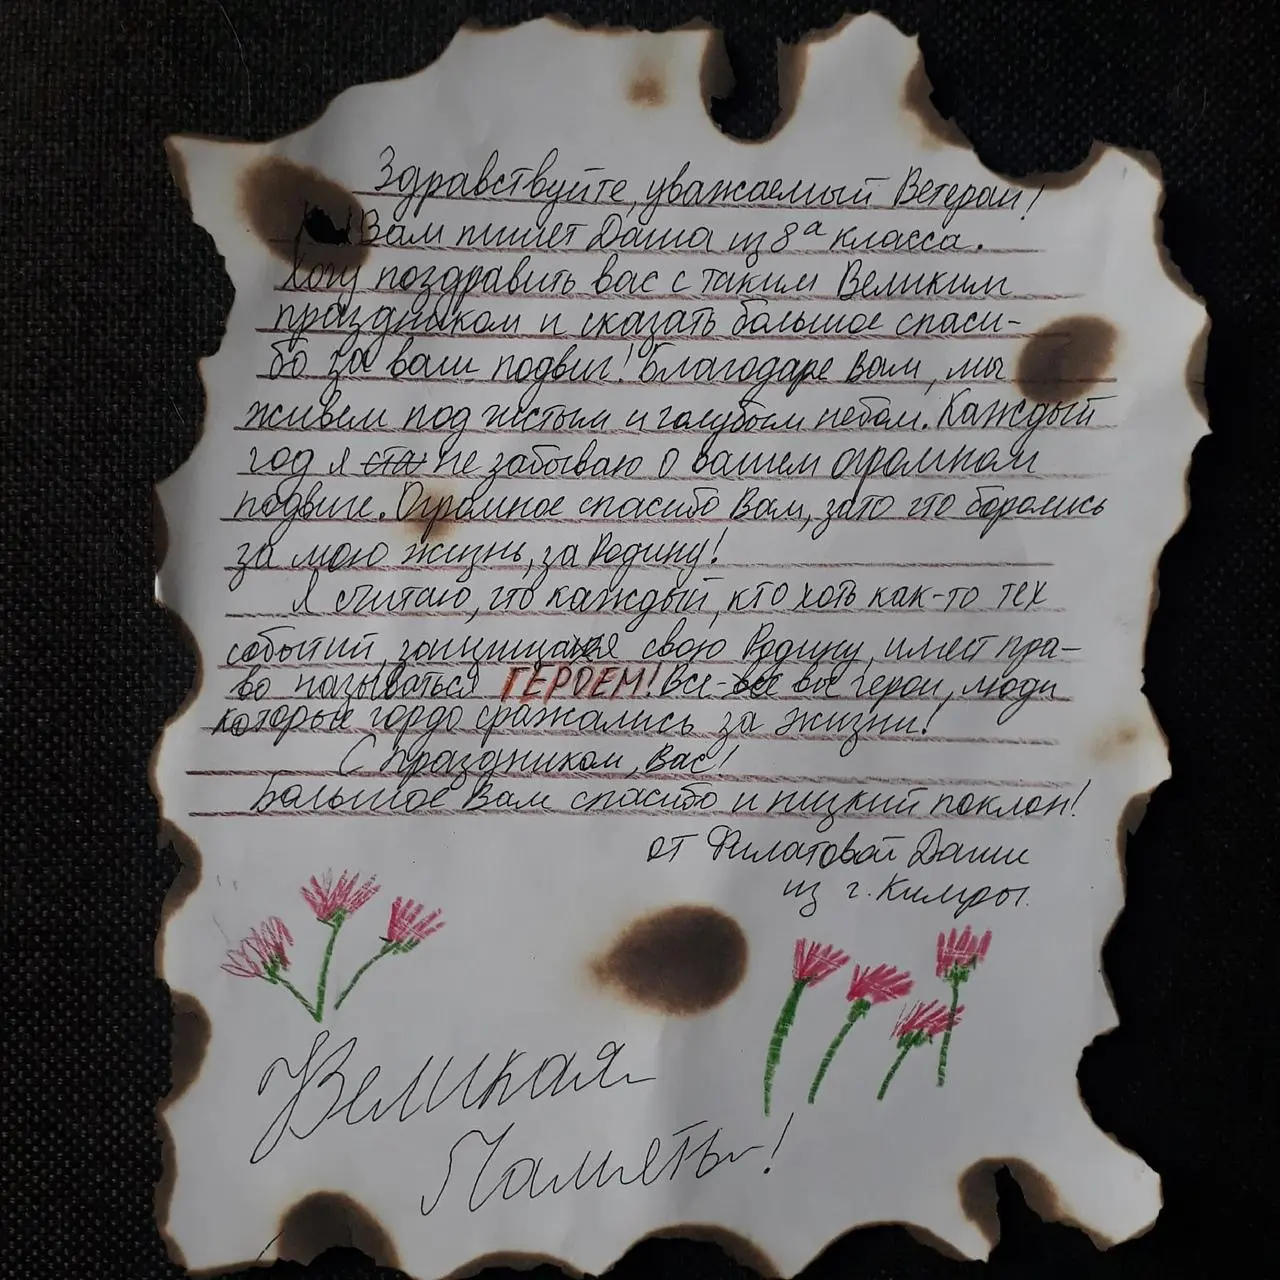 Здравствуйте, уважаемый Ветеран!
Вам пишет Даша из 8а класса.
Хочу поздравить вас с таким Великим
праздником и сказать большое спаси-
бо за ваш подвиг! Благодаре Вам, мы
живём под чистым и голубым небом. Каждый
год я ста не забываю о вашем огромном
подвиге. Огромное спасибо Вам, за то что боролись
за мою жизнь, за Родину!
Я считаю, что каждый, кто хоть как-то тех
событий, защищая свою Родину, имеет пра-
во называться ГЕРОЕМ! Все-все вы герои, люди
которые гордо сражались за жизни!
С праздником, Вас!
Большое Вам спасибо и низкий поклон!
от Филатовой Даши
из г. Кимры.
Великая
Память!